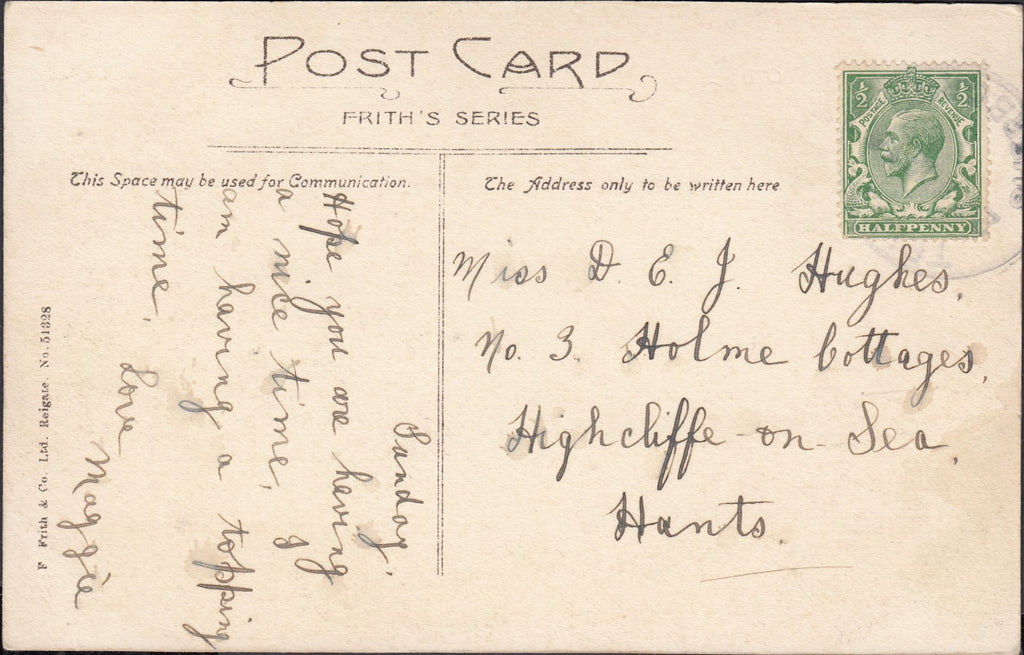 POST CARD
FRITH'S SERIES
This Space may be used for Communication.
The Address only to be written here
½ ½
POSTAGE REVENUE
HALFPENNY
Sunday.
Hope you are having
a nice time, I
am having a topping
time.
Love
Maggie
Miss D. E. J. Hughes,
No. 3. Holme Cottages,
Highcliffe-on-Sea,
Hants.
F Frith & Co. Ltd. Reigate. No. 51328